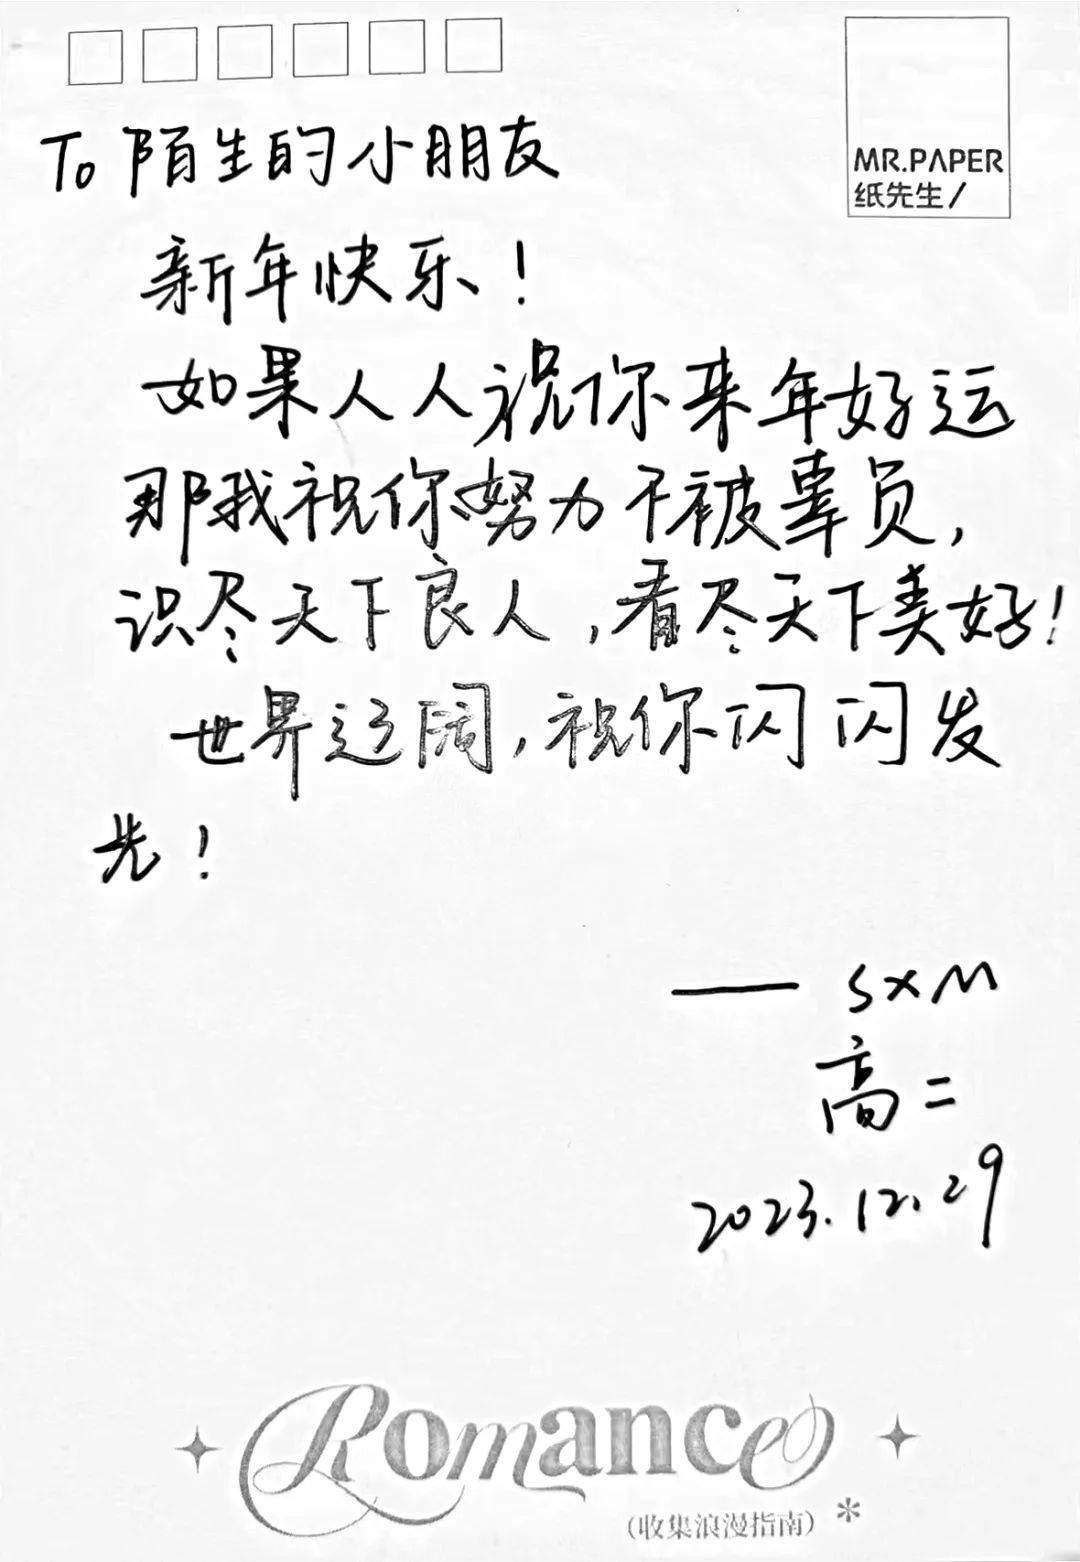 MR.PAPER
纸先生/
To 陌生的小朋友
新年快乐！
如果人人祝你来年好运
那我祝你努力不被辜负，
识尽天下良人，看尽天下美好！
世界辽阔，祝你闪闪发
光！
—— SXM
高二
2023.12.29
Romance
(收集浪漫指南)*